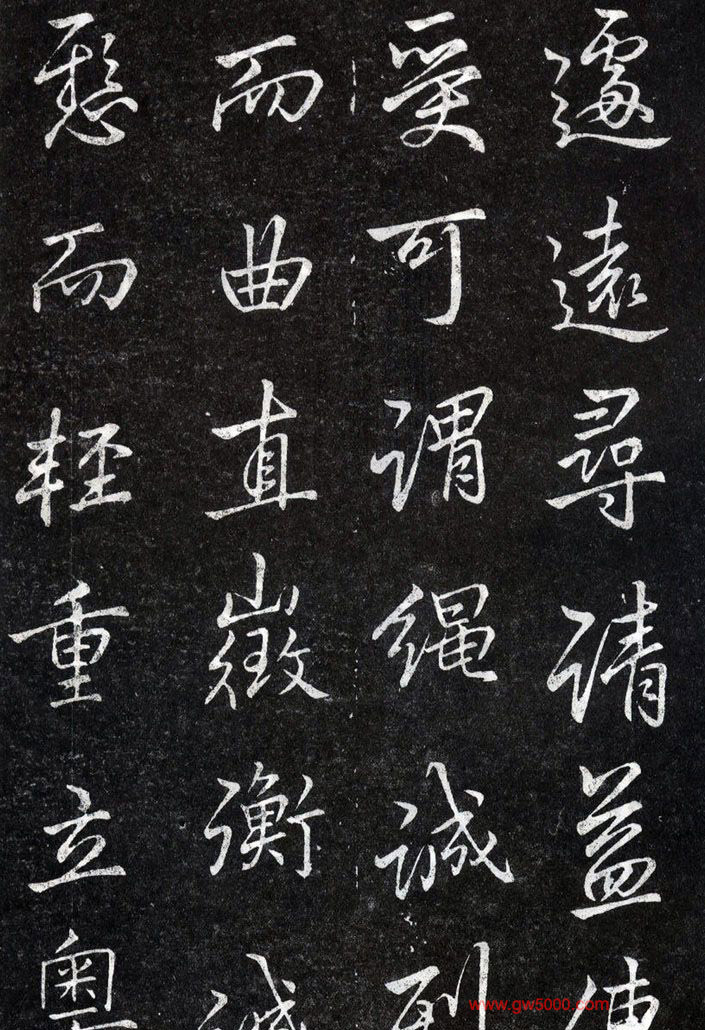 遽遠尋請益
受可謂繩誠列
而曲直徵衡誠
懸而輕重立粵
www.gw5000.com